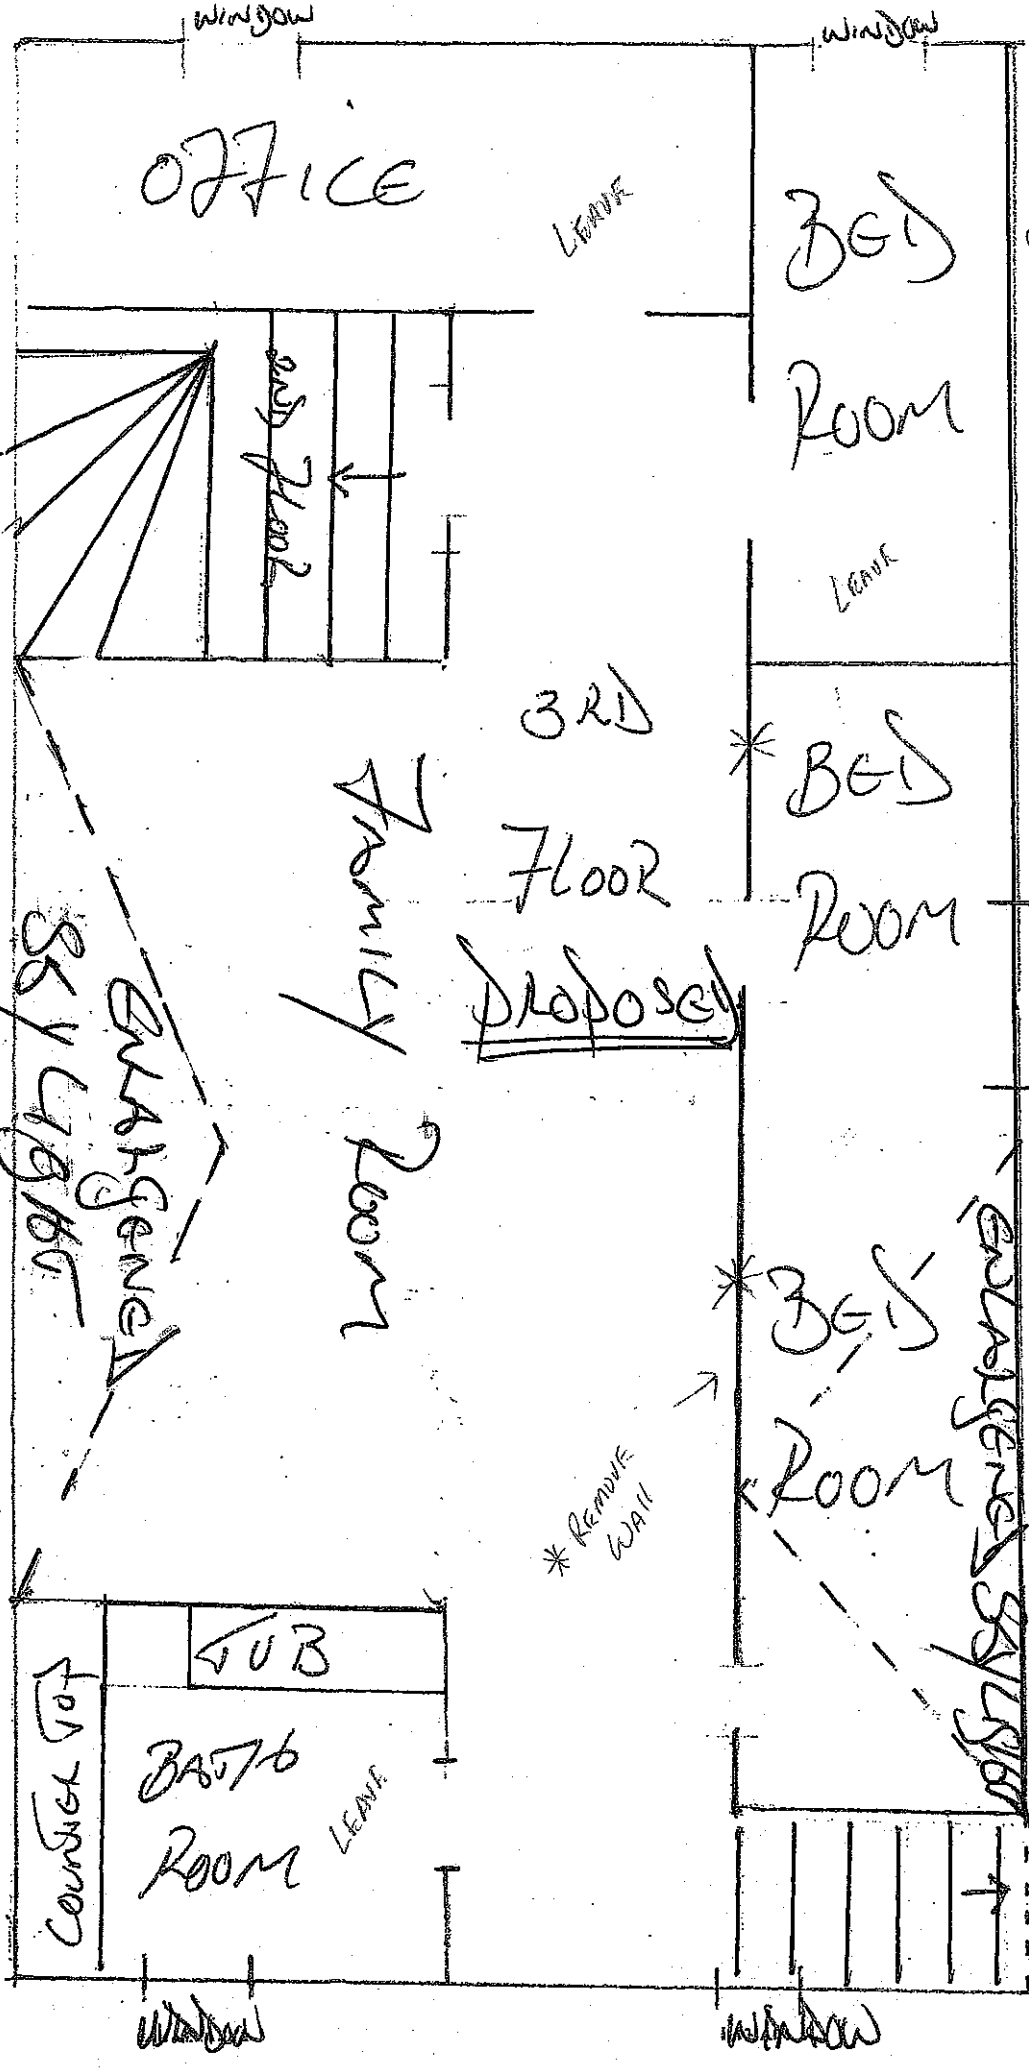 WINDOW
WINDOW
OFFICE
LEAVE
BED
ROOM
LEAVE
2ND FLOOR
3RD
FLOOR
PROPOSED
BED
ROOM
FAMILY ROOM
ENLARGENED
SKYLIGHT
BED
ROOM
ENLARGENED SKYLIGHT
* REMOVE
WALL
TUB
COUNTER TOP
BATH
ROOM
LEAVE
WINDOW
WINDOW